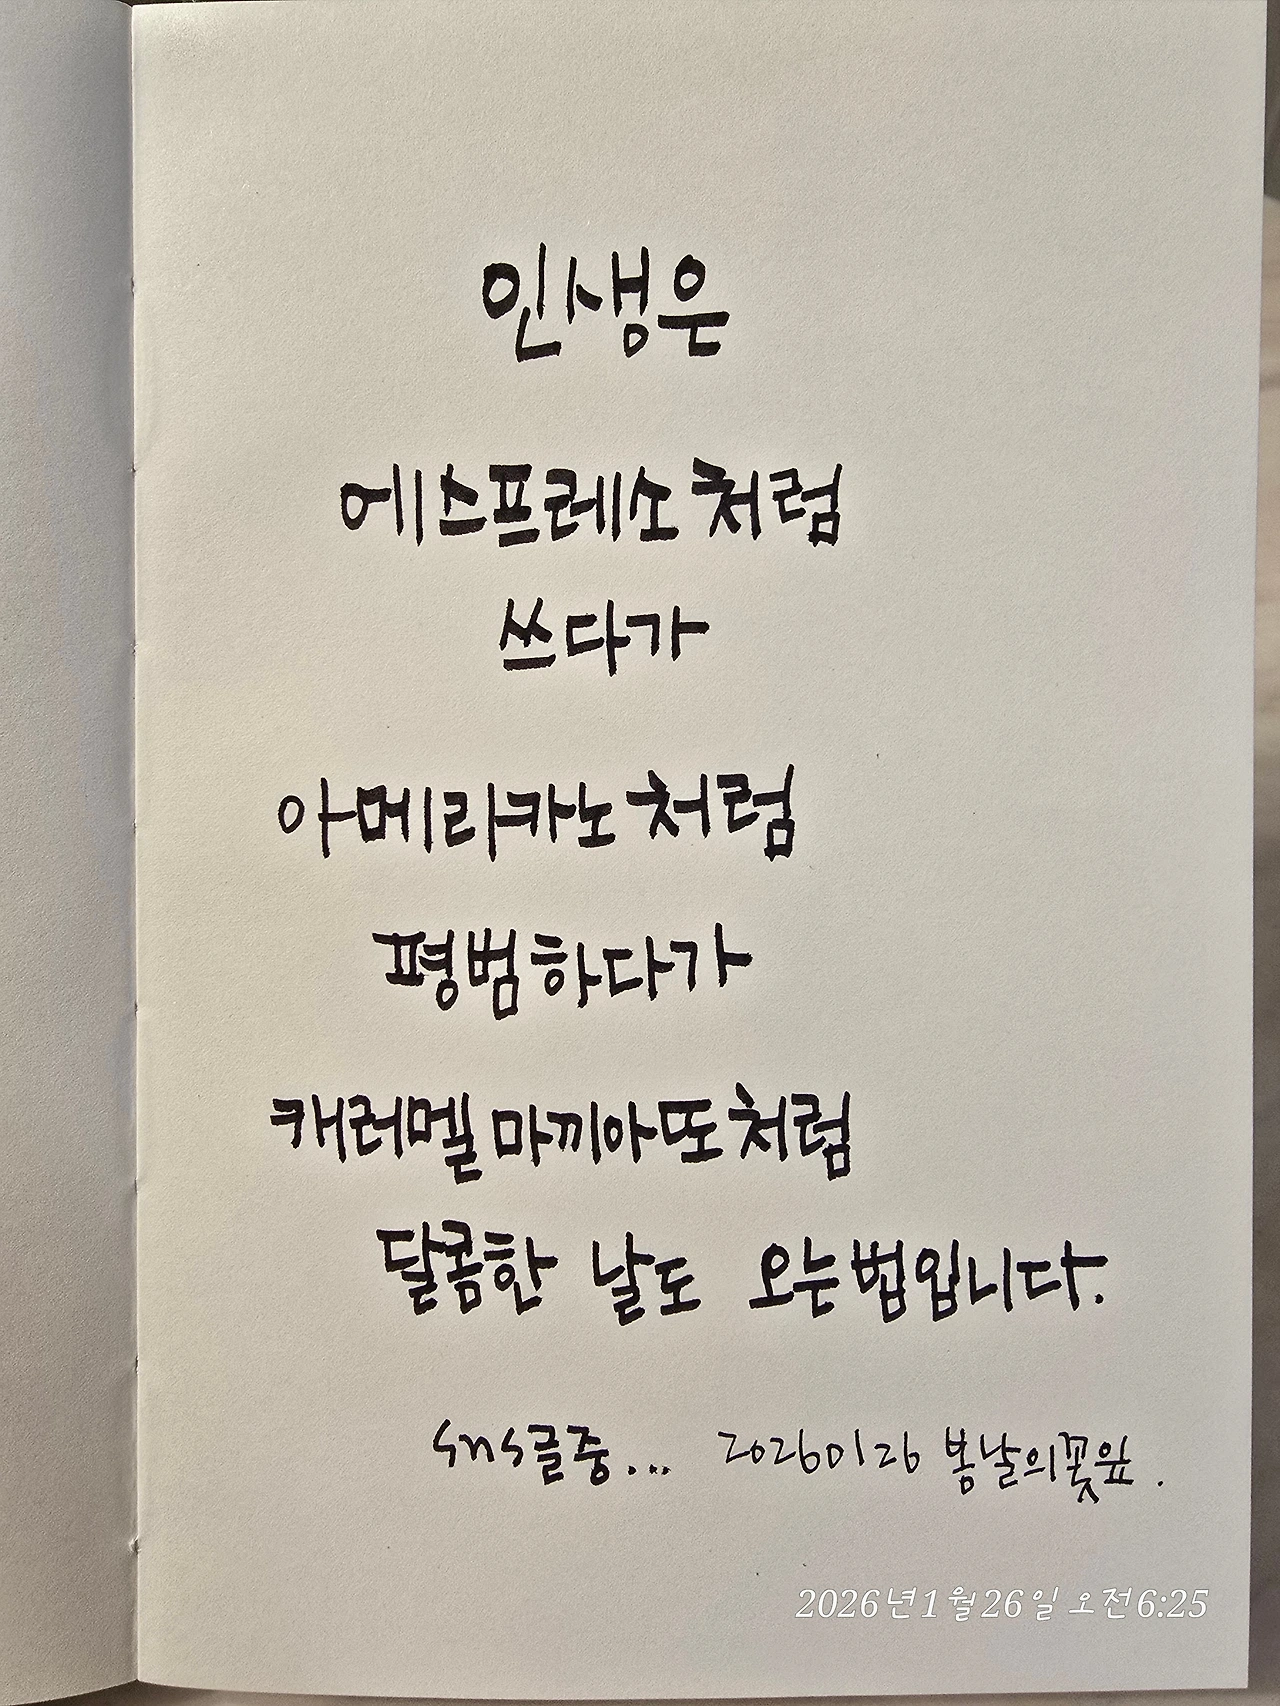 인생은
에스프레소처럼
쓰다가
아메리카노처럼
평범하다가
캐러멜 마끼아또처럼
달콤한 날도 오는법입니다.
sns글중... 20260126 봄날의꽃잎.
2026년 1월 26일 오전 6:25